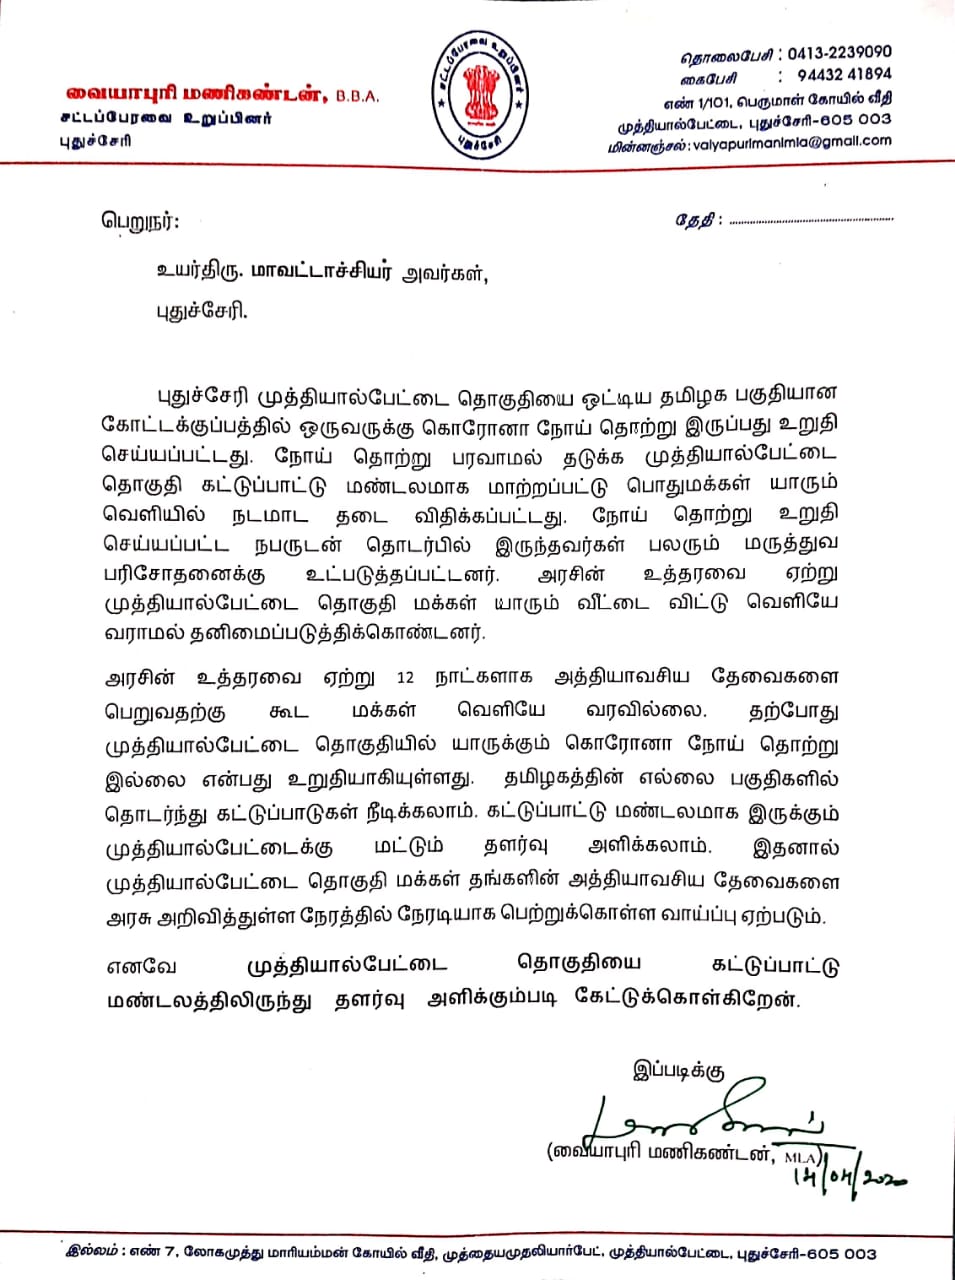 வையாபுரி மணிகண்டன், B.B.A.
சட்டப்பேரவை உறுப்பினர்
புதுச்சேரி
சட்டப்பேரவை உறுப்பினர்
புதுச்சேரி
தொலைபேசி : 0413-2239090
கைபேசி : 94432 41894
எண் 1/101, பெருமாள் கோயில் வீதி
முத்தியால்பேட்டை, புதுச்சேரி-605 003
மின்னஞ்சல் : vaiyapurimanimla@gmail.com
பெறுநர்:
தேதி : ..............................
உயர்திரு. மாவட்டாச்சியர் அவர்கள்,
புதுச்சேரி.
புதுச்சேரி முத்தியால்பேட்டை தொகுதியை ஒட்டிய தமிழக பகுதியான
கோட்டக்குப்பத்தில் ஒருவருக்கு கொரோனா நோய் தொற்று இருப்பது உறுதி
செய்யப்பட்டது. நோய் தொற்று பரவாமல் தடுக்க முத்தியால்பேட்டை
தொகுதி கட்டுப்பாட்டு மண்டலமாக மாற்றப்பட்டு பொதுமக்கள் யாரும்
வெளியில் நடமாட தடை விதிக்கப்பட்டது. நோய் தொற்று உறுதி
செய்யப்பட்ட நபருடன் தொடர்பில் இருந்தவர்கள் பலரும் மருத்துவ
பரிசோதனைக்கு உட்படுத்தப்பட்டனர். அரசின் உத்தரவை ஏற்று
முத்தியால்பேட்டை தொகுதி மக்கள் யாரும் வீட்டை விட்டு வெளியே
வராமல் தனிமைப்படுத்திக்கொண்டனர்.
அரசின் உத்தரவை ஏற்று 12 நாட்களாக அத்தியாவசிய தேவைகளை
பெறுவதற்கு கூட மக்கள் வெளியே வரவில்லை. தற்போது
முத்தியால்பேட்டை தொகுதியில் யாருக்கும் கொரோனா நோய் தொற்று
இல்லை என்பது உறுதியாகியுள்ளது. தமிழகத்தின் எல்லை பகுதிகளில்
தொடர்ந்து கட்டுப்பாடுகள் நீடிக்கலாம். கட்டுப்பாட்டு மண்டலமாக இருக்கும்
முத்தியால்பேட்டைக்கு மட்டும் தளர்வு அளிக்கலாம். இதனால்
முத்தியால்பேட்டை தொகுதி மக்கள் தங்களின் அத்தியாவசிய தேவைகளை
அரசு அறிவித்துள்ள நேரத்தில் நேரடியாக பெற்றுக்கொள்ள வாய்ப்பு ஏற்படும்.
எனவே முத்தியால்பேட்டை தொகுதியை கட்டுப்பாட்டு
மண்டலத்திலிருந்து தளர்வு அளிக்கும்படி கேட்டுக்கொள்கிறேன்.
இப்படிக்கு
(வையாபுரி மணிகண்டன், MLA)
14/04/2020
இல்லம் : எண் 7, லோகமுத்து மாரியம்மன் கோயில் வீதி, முத்தையமுதலியார்பேட், முத்தியால்பேட்டை, புதுச்சேரி-605 003